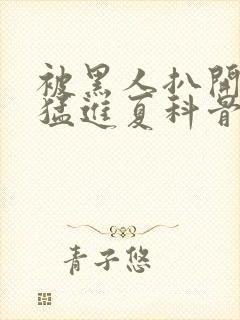 被黑人扒開
猛進夏科骨
青子悠